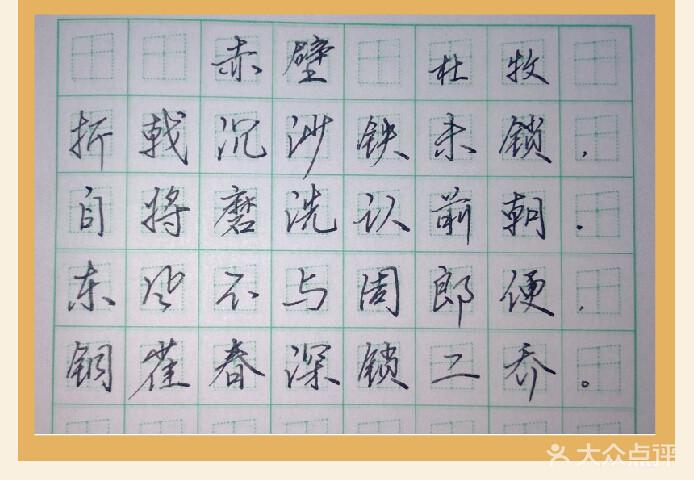 赤壁 杜牧
折戟沉沙铁未锁.
自将磨洗认前朝.
东风不与周郎便.
铜雀春深锁二乔。
大众点评